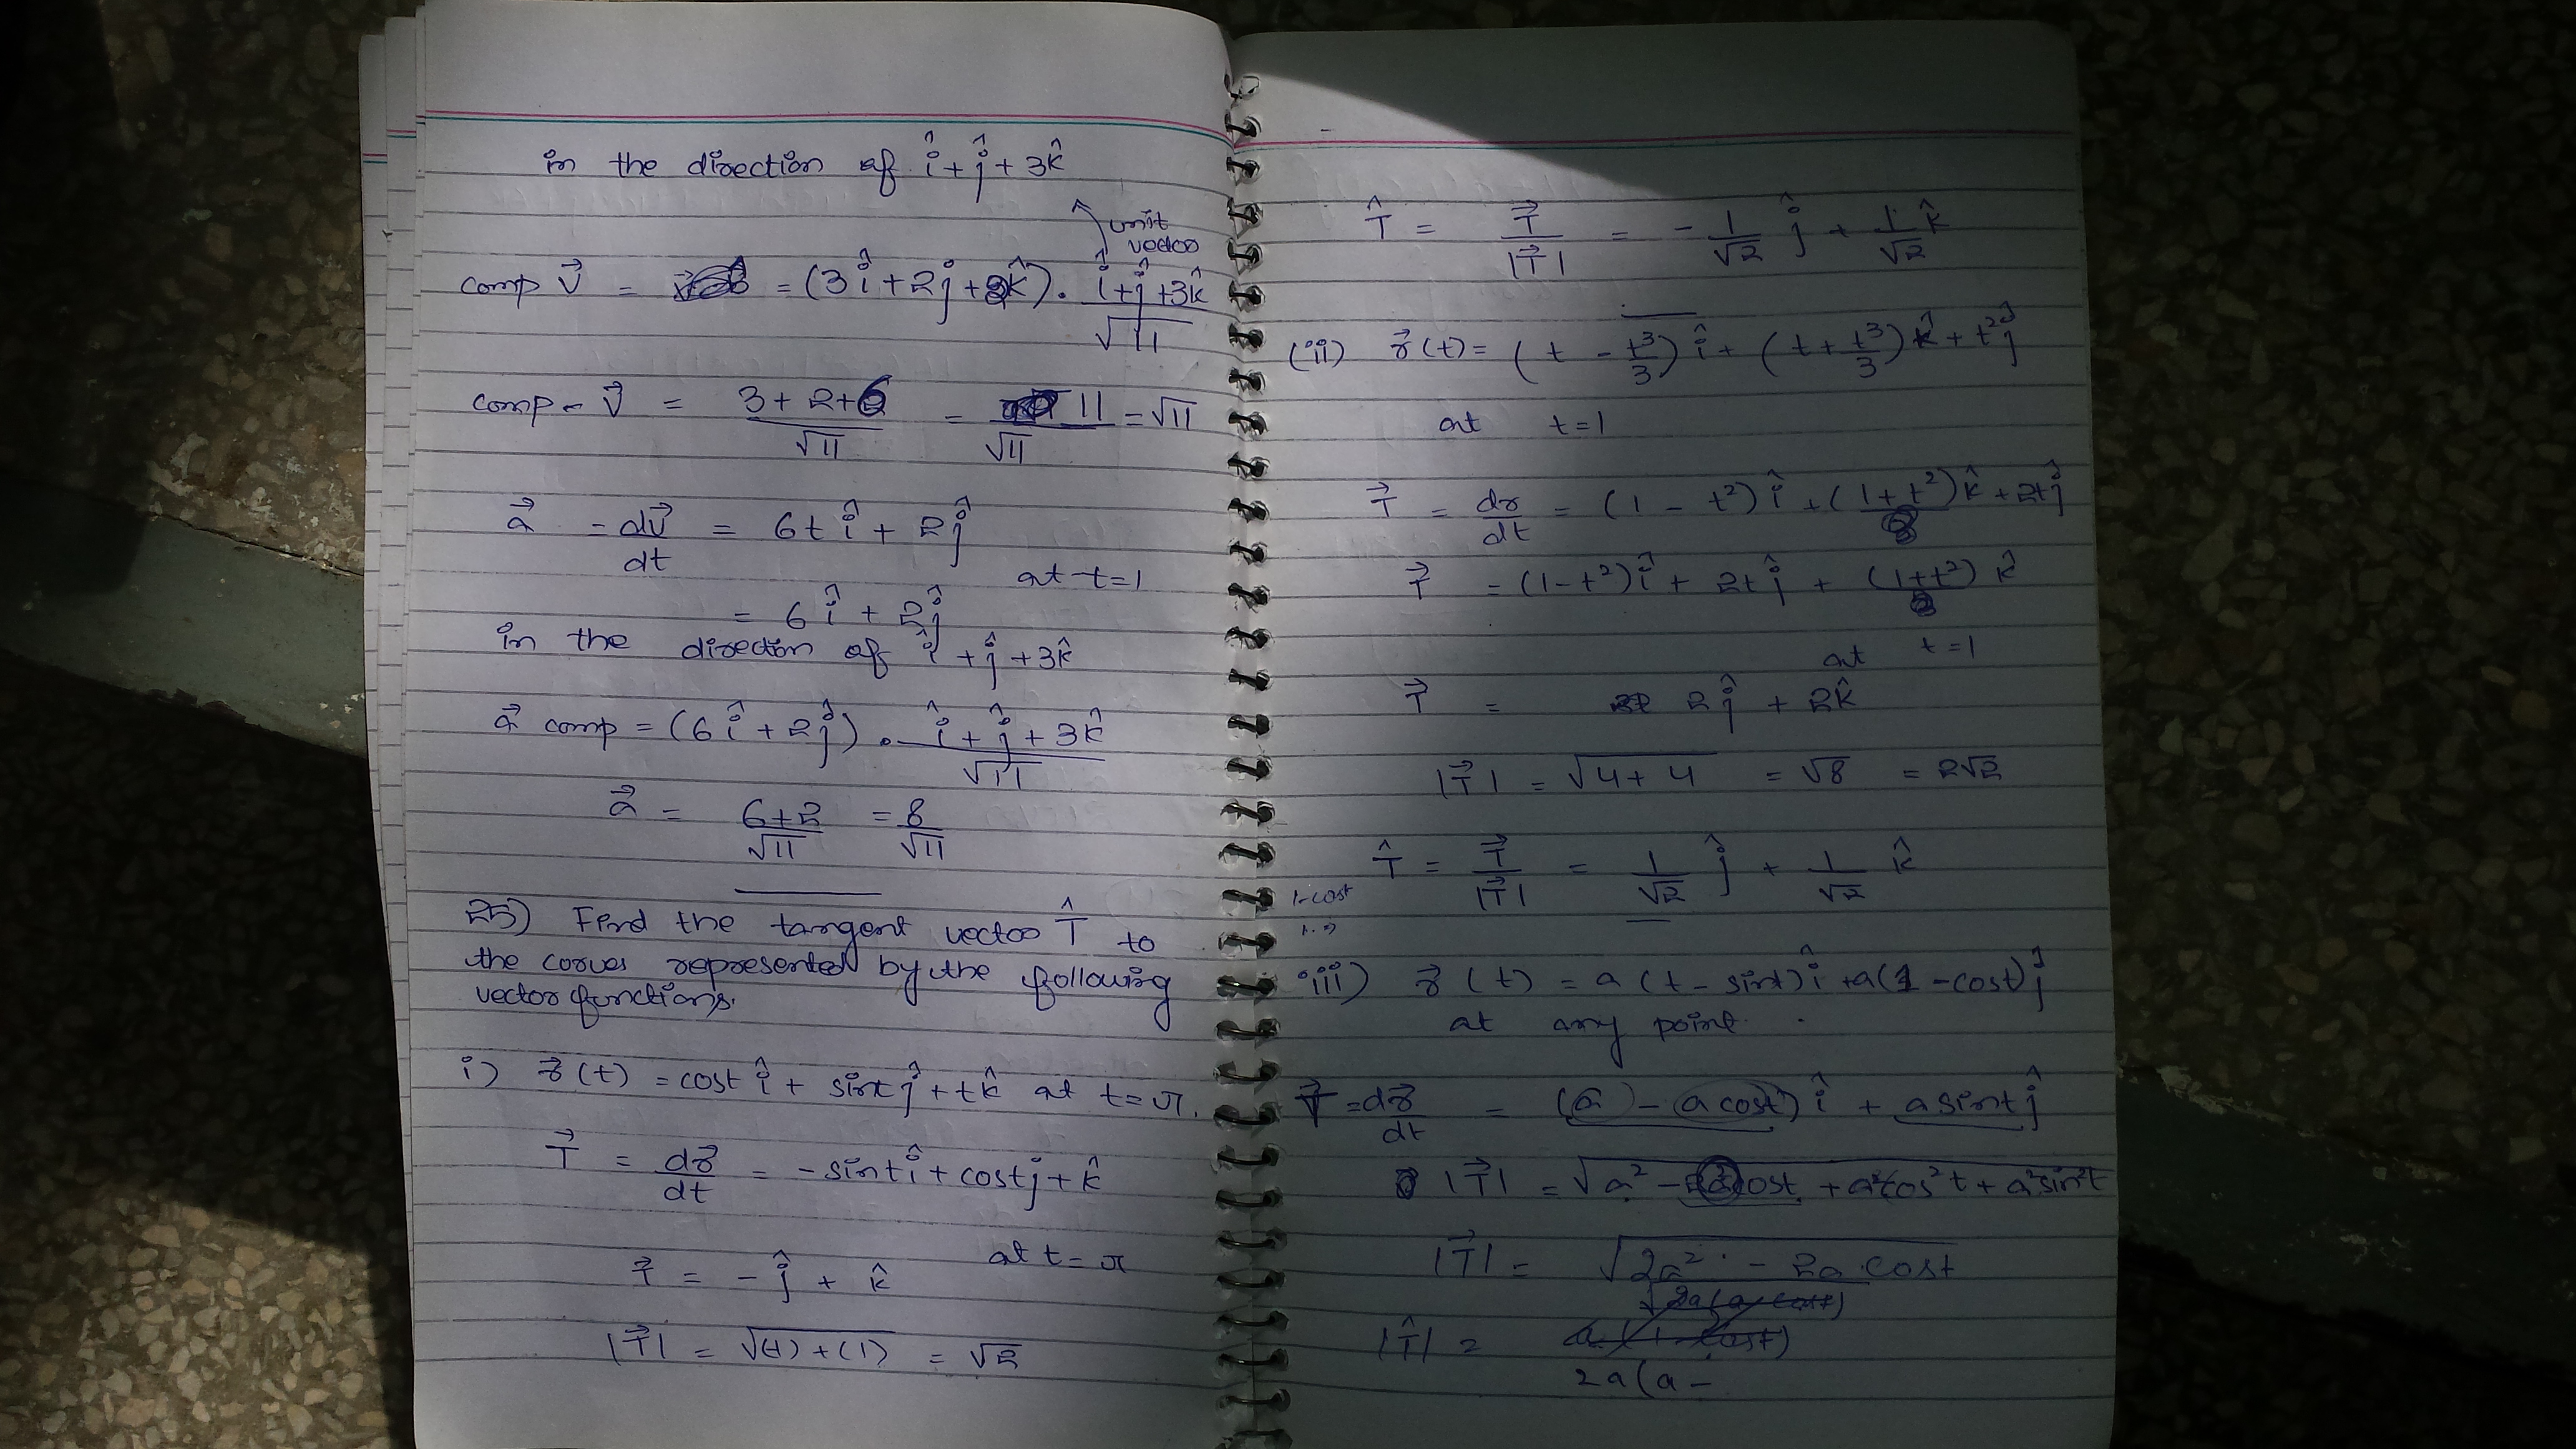 in the direction of î + ĵ + 3k̂
unit
vector
comp v⃗ = = (3î + 2j + 2k̂) . î + ĵ + 3k̂ / √11
comp - v⃗ = 3 + 2 + 6 / √11 = 11 / √11 = √11
a⃗ = dv⃗/dt = 6t î + 2ĵ
at t = 1
= 6î + 2ĵ
in the direction of î + ĵ + 3k̂
a⃗ comp = (6î + 2ĵ) . î + ĵ + 3k̂ / √11
a⃗ = 6+2 / √11 = 8 / √11
25) Find the tangent vector T̂ to
the curves represented by the following
vector functions.
i) r⃗(t) = cost î + sint ĵ + t k̂ at t = π.
T⃗ = dr⃗/dt = -sint î + cost j + k̂
at t = π
T⃗ = - ĵ + k̂
|T⃗| = √(1) + (1) = √2
T̂ = T⃗ / |T⃗| = - 1/√2 ĵ + 1/√2 k̂
(ii) r⃗(t) = (t - t³/3) î + (t + t³/3) k̂ + t² ĵ
at t = 1
T⃗ = dr/dt = (1 - t²) î + (1 + t²) k̂ + 2t ĵ
T⃗ = (1 - t²) î + 2t ĵ + (1 + t²) k̂
at t = 1
T⃗ = 2ĵ + 2k̂
|T⃗| = √4 + 4 = √8 = 2√2
T̂ = T⃗ / |T⃗| = 1/√2 ĵ + 1/√2 k̂
1-cost
iii) r⃗(t) = a(t - sint) î + a(1 - cost) ĵ
at any point.
T⃗ = dr⃗/dt = (a - a cost) î + a sint ĵ
|T⃗| = √a² - 2a² cost + a² cos² t + a² sin² t
|T⃗| = √2a² - 2a cost
√2a(a - cost)
|T̂| = a (1 - cost)
2a(a -